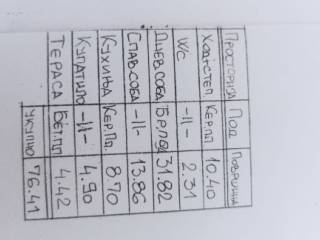 ПРОСТОРИЈА ПОД ПОВРШИНА
ХОД+СТЕП. КЕР.ПЛ 10.40
WC -||- 2.31
ДНЕВ.СОБА БР.ПОД 31.82
СПАВ.СОБА -||- 13.86
КУХИЊА КЕР.ПЛ. 8.70
КУПАТИЛО -||- 4.90
ТЕРАСА БЕТ.ПЛ 4.42
УКУПНО 76.41